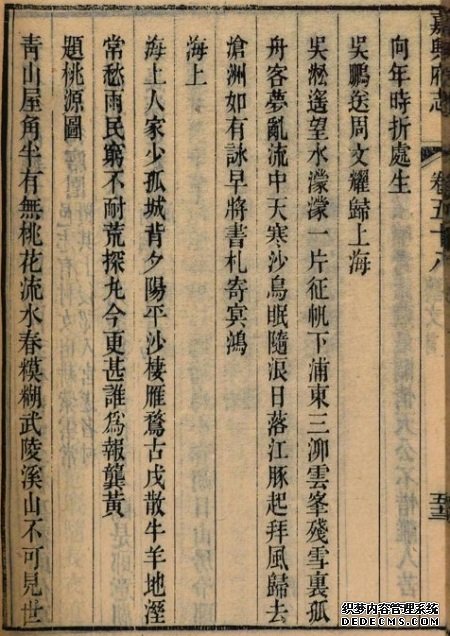 嘉興府志
卷五十八
向年時折處生
吳鵬送周文耀歸上海
吳淞遙望水濛濛一片征帆下浦東三泖雲峯殘雪裏孤
舟客夢亂流中天寒沙鳥眠隨浪日落江豚起拜風歸去
滄洲如有詠早將書札寄冥鴻
海上
海上人家少孤城背夕陽平沙棲雁鶩古戍散牛羊地溼
常愁雨民窮不耐荒探丸今更甚誰爲報龔黃
題桃源圖
青山屋角半有無桃花流水春糢糊武陵溪山不可見世
织梦内容管理系统
DEDECMS.COM